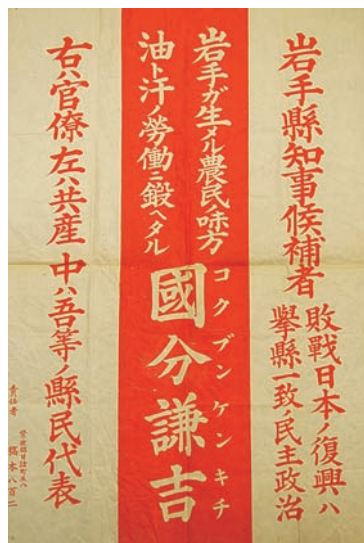 岩手縣知事候補者
敗戰日本ノ復興ハ
擧縣一致ノ民主政治
岩手ガ生メル農民味方
油ト汗ノ勞働ニ鍛ヘタル
コクブンケンキチ
國分謙吉
右ハ官僚 左ハ共産 中ハ吾等ノ縣民代表
責任者 橋本八百二